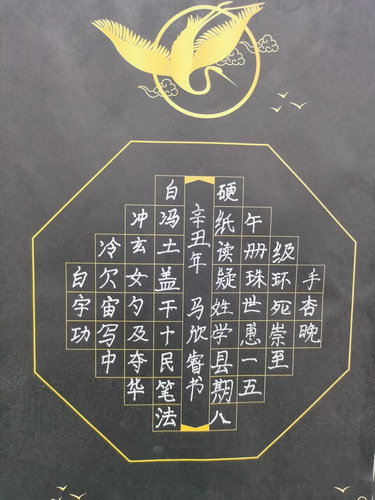 手杏晚
级环死崇至
午册珠世惠一五
硬纸读疑姓学县期八
辛丑年 马欣睿书
白冯土益干十民笔法
冲玄女勺及夺华
冷欠宙写中
自宇功